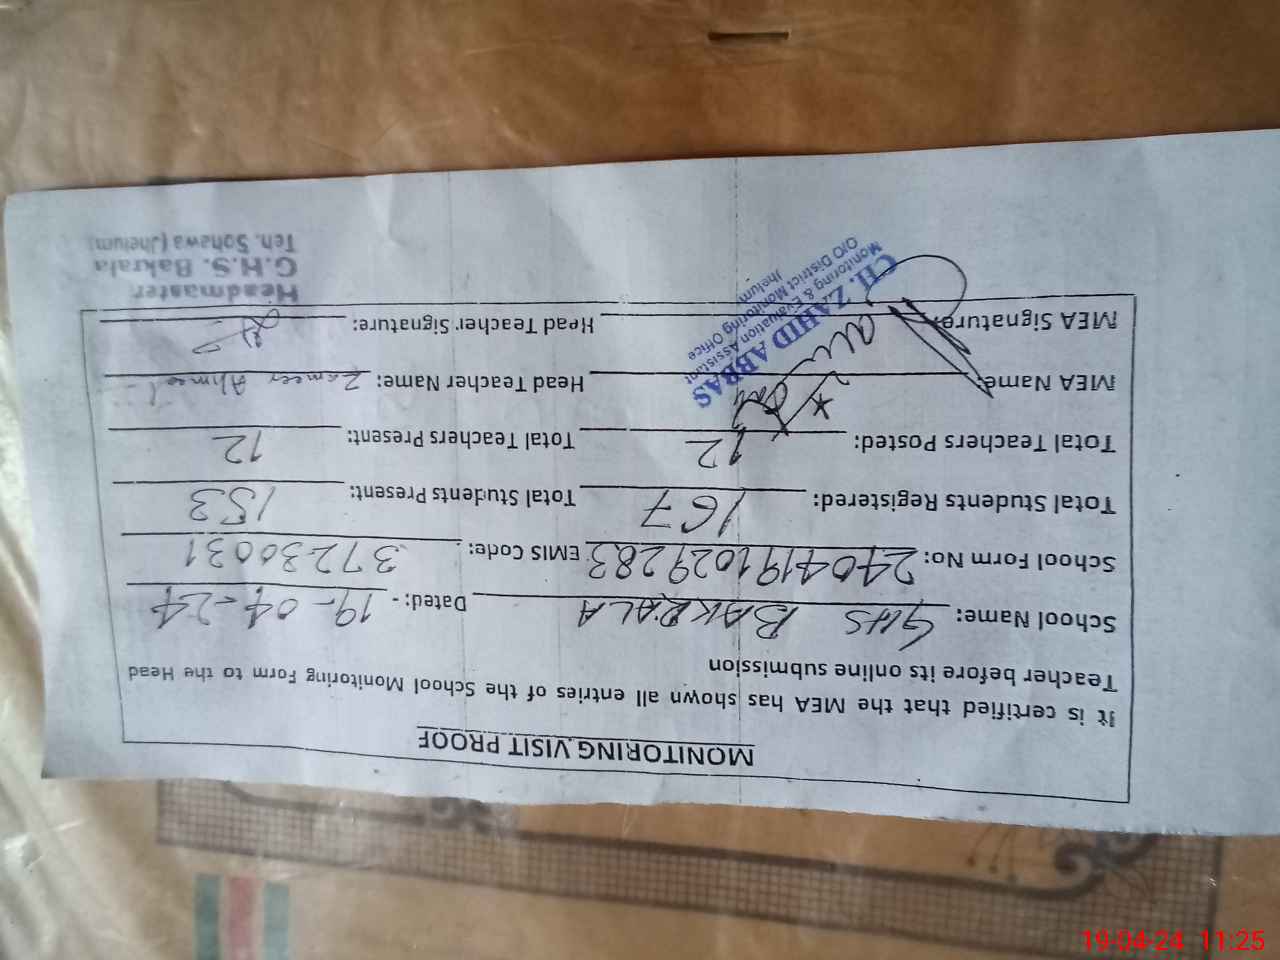 MONITORING VISIT PROOF
It is certified that the MEA has shown all entries of the School Monitoring Form to the Head
Teacher before its online submission
School Name: GHS BAKRALA Dated: - 19-04-24
School Form No: 2404191029283 EMIS Code: 37230031
Total Students Registered: 167 Total Students Present: 153
Total Teachers Posted: 12 Total Teachers Present: 12
MEA Name: Head Teacher Name: Zameer Ahmed
MEA Signature: Head Teacher Signature:
CH. ZAHID ABBAS
Monitoring & Evaluation Assistant
O/O District Monitoring Office
Jhelum
Headmaster
G.H.S. Bakrala
Teh. Sohawa (Jhelum)
19-04-24 11:25